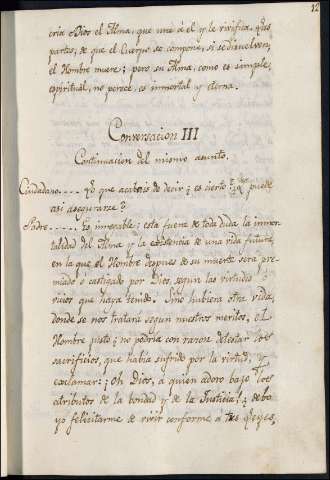 12
cria Dios el Alma, que une á él y le vivifica. Las
partes, de que el Cuerpo se compone, si se disuelven,
el Hombre muere; pero su Alma, como es simple,
espiritual, no perece, es inmortal y eterna.
Conversacion III
Continuacion del mismo asunto.
Ciudadano.... Lo que acabais de decir; es cierto? puede
asi asegurarse?
Padre..... Es innegable: esta fuera de toda duda la inmor
talidad del Alma y la existencia de una vida futura,
en la que el Hombre despues de su muerte será pre
miado ó castigado por Dios, segun las virtudes ó
vicios que haya tenido. Sino hubiera otra vida,
donde se nos tratara segun nuestros meritos, el
Hombre justo; no podria con razon detestar los
sacrificios, que habia sufrido por la virtud, y
exclamar: ¡Oh Dios, á quien adoro bajo los
atributos de la bondad y de la Justicia!; debo
yo felicitarme de vivir conforme á tus Leyes,